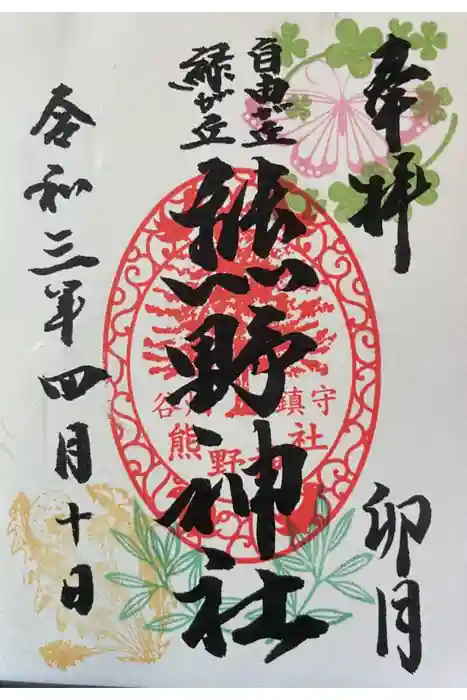 奉拝
卯月
自由が丘
緑が丘
熊野神社
鎮守
熊野神社
令和三年四月十日